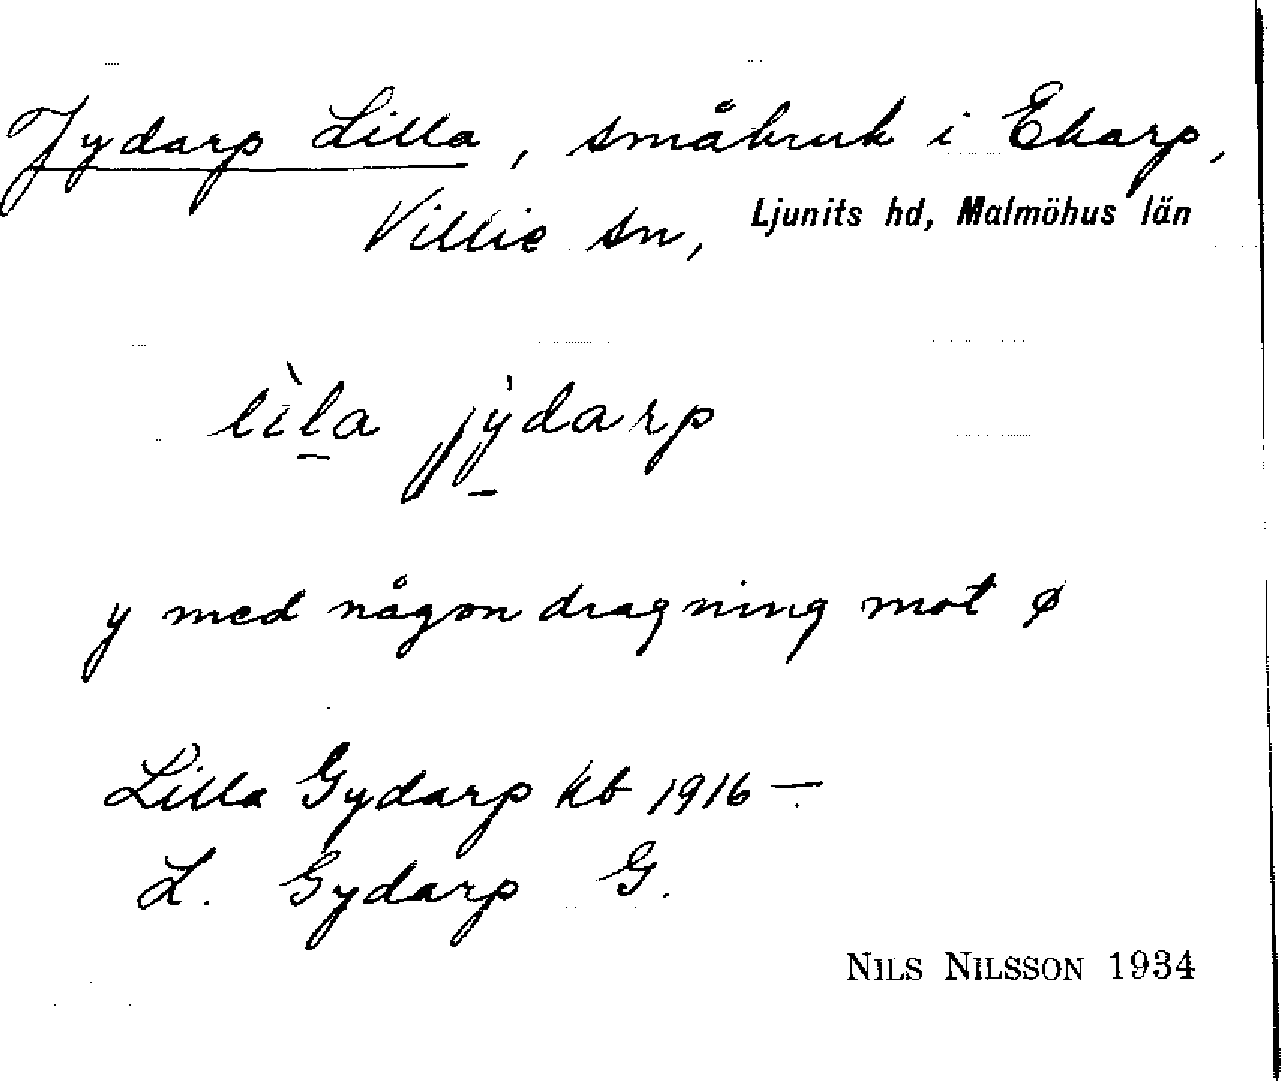 Jydarp Lilla, småbruk i Ekarp,
Villie sn, Ljunits hd, Malmöhus län
lìl̠a jỳ̠darp
y med någon dragning mot ø
Lilla Gydarp kb 1916 –
L. Gydarp G.
NILS NILSSON 1934